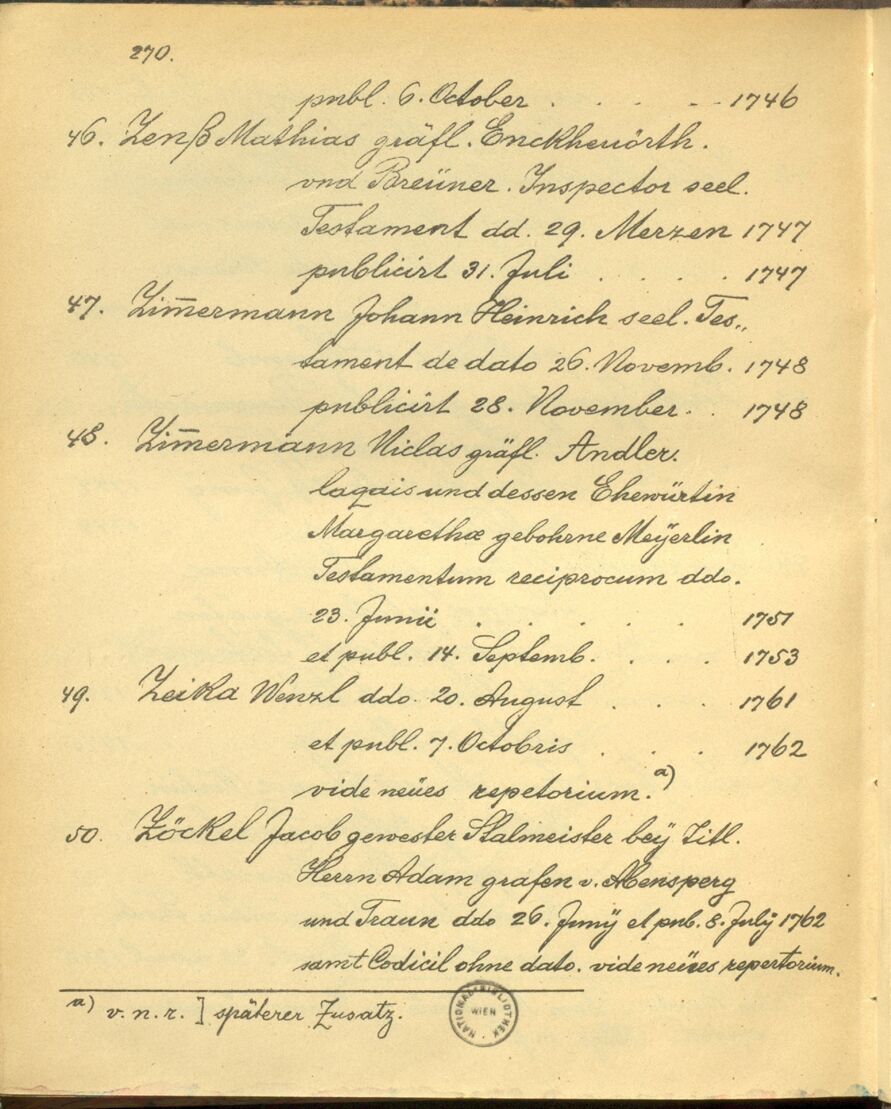 270.
publ. 6. October . . . . . 1746
46. Zenß Mathias gräfl. Enckheuörth.
vnd Breüner. Inspector seel.
Testament dd. 29. Merzen 1747
publicirt 31. Juli . . . . 1747
47. Zim̅ermann Johann Heinrich seel. Tes„
tament de dato 26. Novemb. 1748
publicirt 28. November. . 1748
48. Zim̅ermann Niclas gräfl. Andler.
laqais und dessen Ehewürtin
Margarethæ gebohrne Meÿerlin
Testamentum reciprocum ddo.
23. Junii . . . . . 1751
et publ. 14. Septemb. . . . 1753
49. Zeika Wenzl ddo. 20. August . . . 1761
et publ. 7. Octobris . . . 1762
vide neües repetorium. a)
50. Zöckel Jacob gewester Stalmeister beÿ Titl.
Herrn Adam grafen v. Abensperg
und Traun ddo 26. Junÿ et pub. 8. Julÿ 1762
samt Codicil ohne dato. vide neües repertorium.
a) v. n. r. ] späterer Zusatz.
NATIONAL-BIBLIOTHEK WIEN